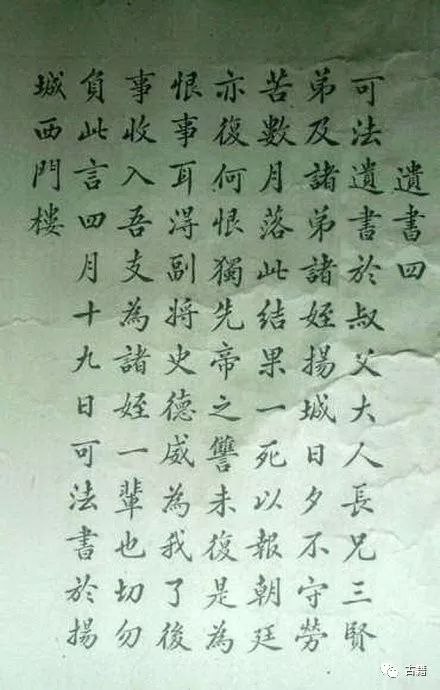 遺書四
可法遺書於叔父大人長兄三賢
弟及諸弟諸姪揚城日夕不守勞
苦數月落此結果一死以報朝廷
亦復何恨獨先帝之讐未復是為
恨事耳淂副將史德威為我了後
事收入吾支為諸姪一輩也切勿
負此言四月十九日可法書於揚
城西門樓
古籍